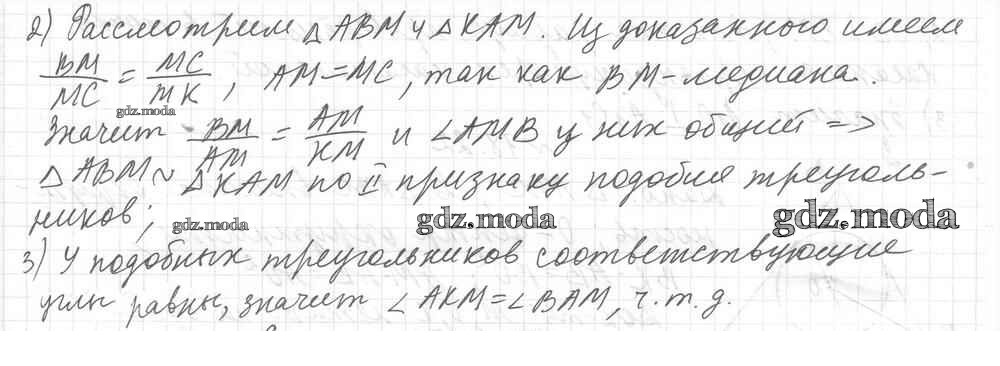 2) Рассмотрим △ABM и △KAM. Из доказанного имеем
BM/MC = MC/MK, AM=MC, так как BM-медиана.
gdz.moda
Значит BM/AM = AM/KM и ∠AMB у них общий =>
△ABM ~ △KAM по II признаку подобия треуголь-
ников;
gdz.moda gdz.moda gdz.moda
3) У подобных треугольников соответствующие
углы равны, значит ∠AKM=∠BAM, ч.т.д.